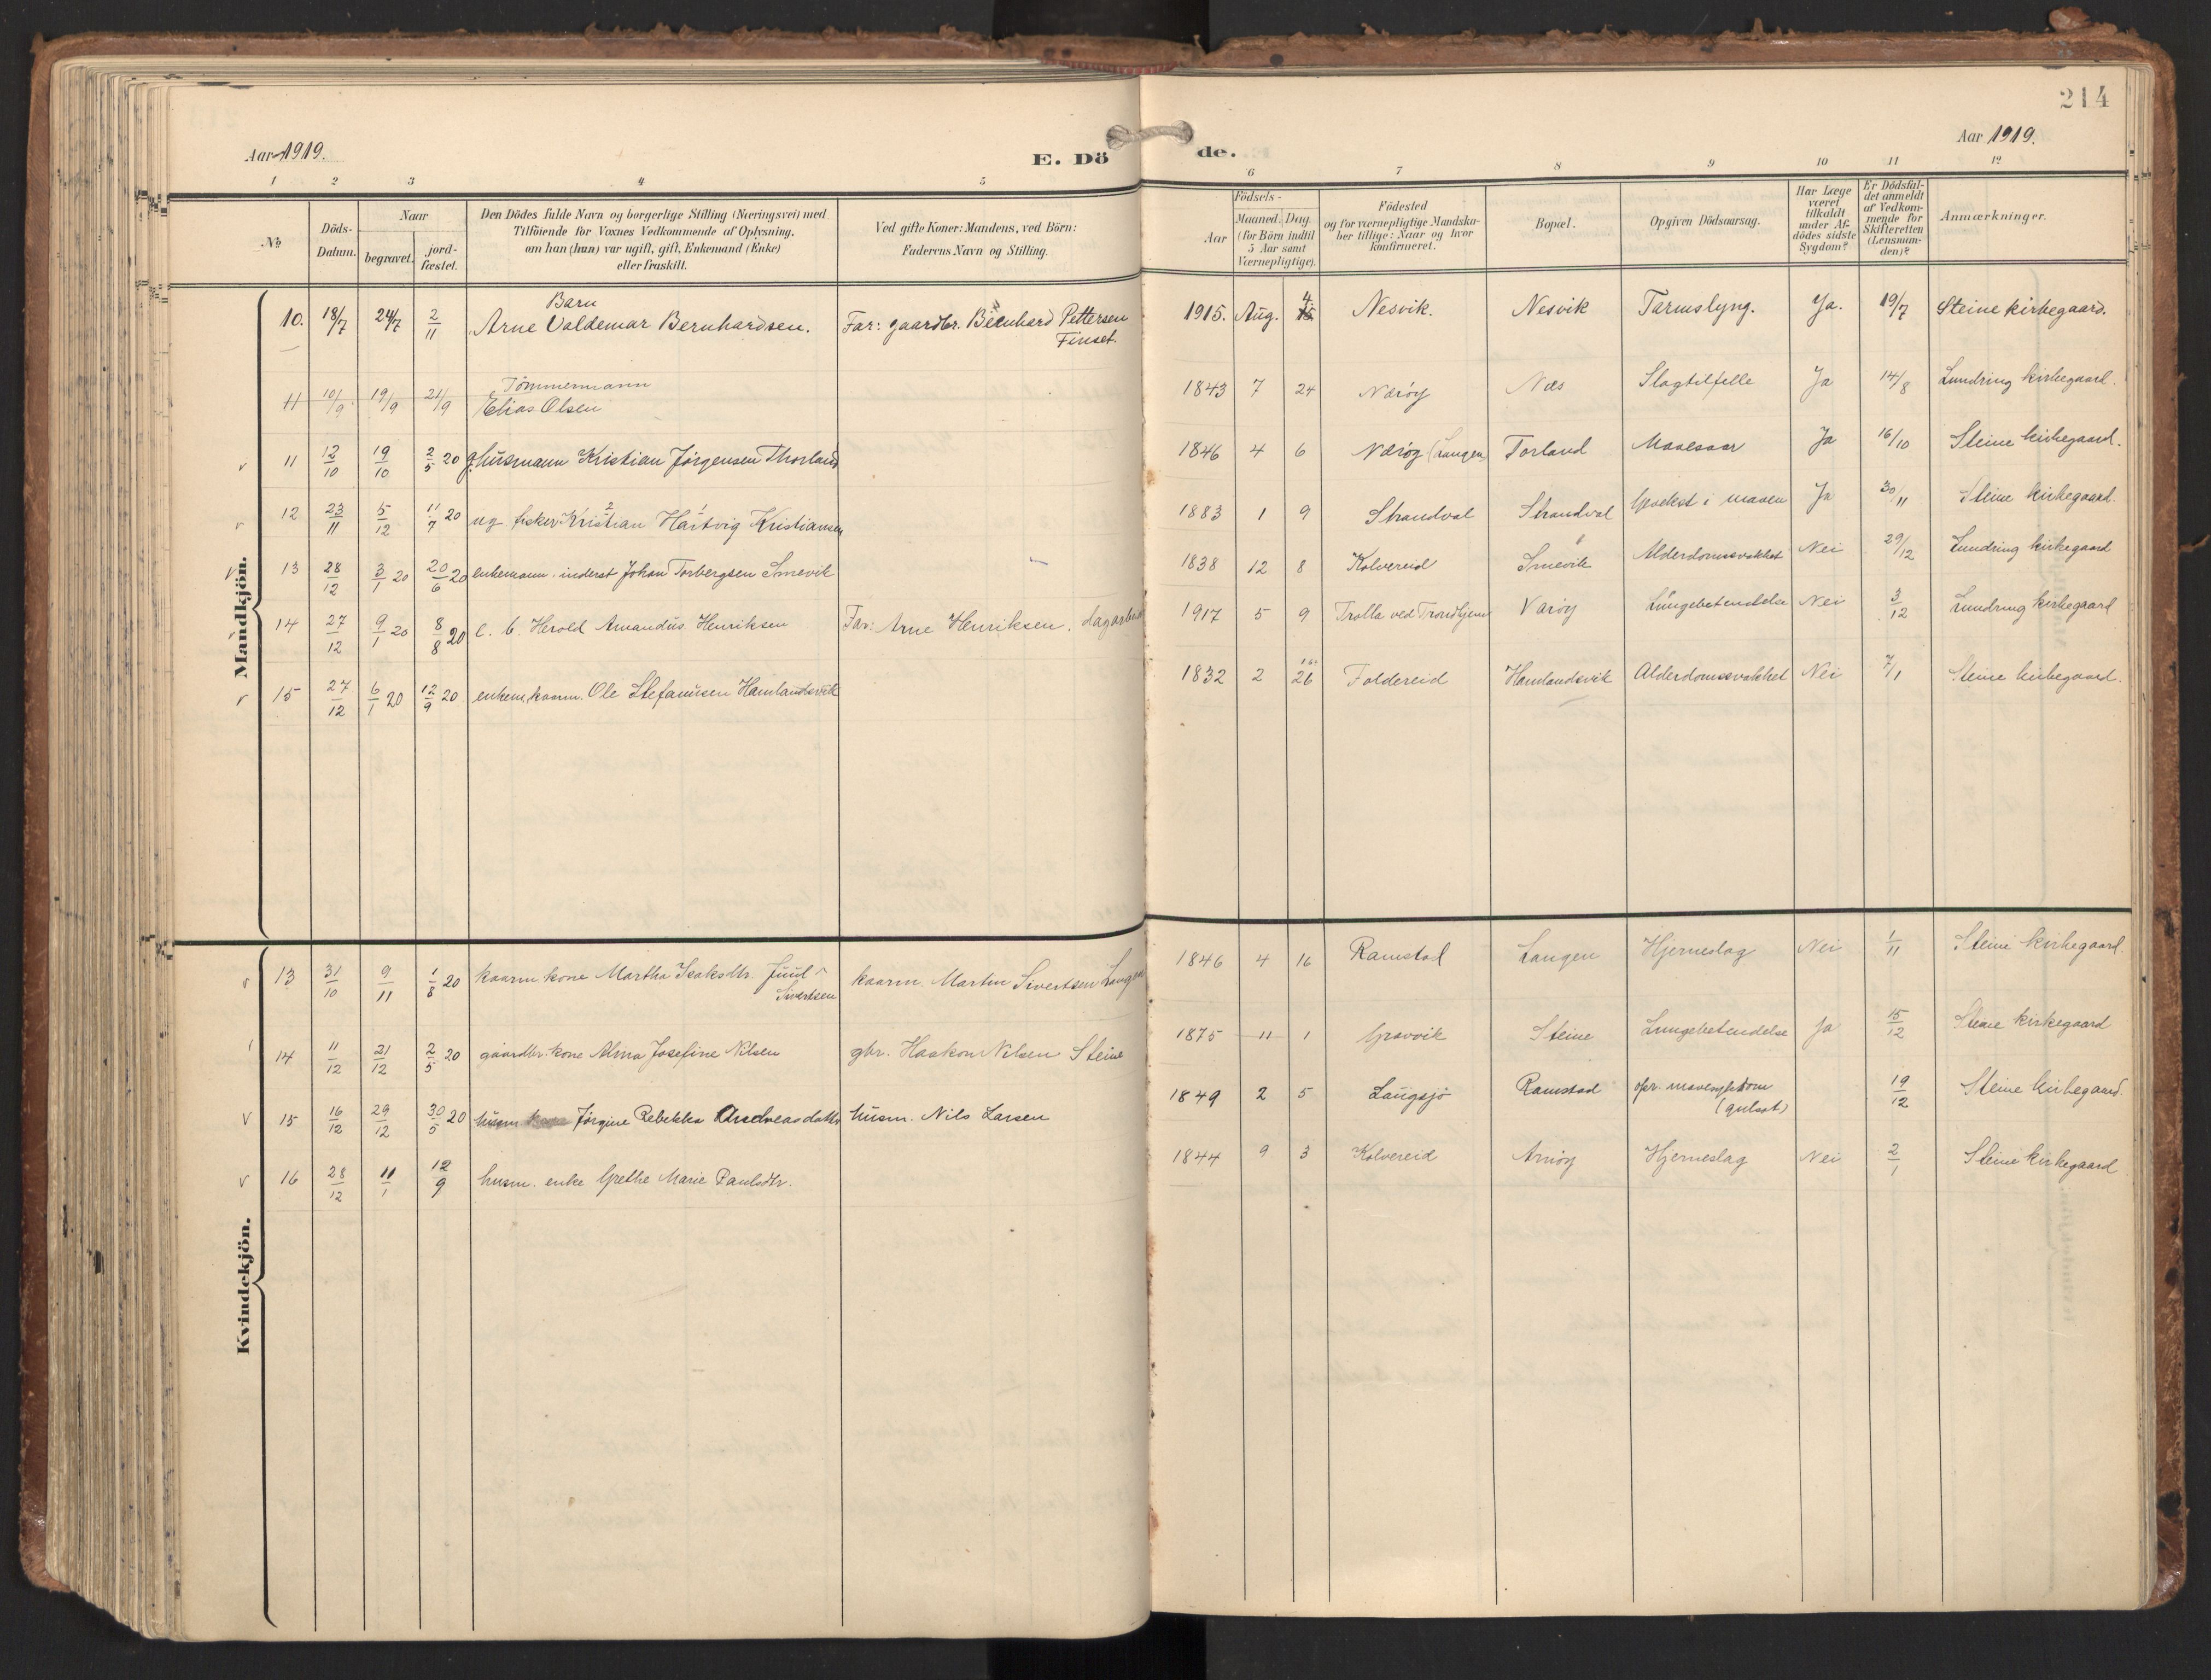 214
Aar 1919.
E. Dö
de.
Aar 1919.
1 2 3 4 5
6 7 8 9 10 11 12
№
Döds-
Datum.
Naar
begravet.
jord-
fæstet.
Den Dödes fulde Navn og borgerlige Stilling (Næringsvei) med
Tilföiende for Voxnes Vedkommende af Oplysning,
om han (hun) var ugift, gift, Enkemand (Enke)
eller fraskilt.
Ved gifte Koner: Mandens, ved Börn:
Faderens Navn og Stilling.
Födsels-
Aar
Maaned. Dag.
(for Börn indtil
5 Aar samt
Værnepligtige).
Födested
og for værnepligtige Mandska-
ber tillige: Naar og hvor
konfirmeret.
Bopæl.
Opgiven Dödsaarsag.
Har Læge
været
tilkaldt
under Af-
dödes sidste
Sygdom?
Er Dödsfal-
det anmeldt
af Vedkom-
mende for
Skifteretten
(Lensman-
den)?
Anmærkninger.
Mandkjön.
Barn
10. 18/7 24/7 2/11 Arne Valdemar Bernhardsen. Far: gaardbr. Bernhard Pettersen 1915. Aug. 4. Nesvik. Nesvik Tarmslyng. Ja. 19/7 Steine kirkegaard.
Finset.
Tömmermann
11 10/9 19/9 21/9 Elias Olsen 1843 7 24 Nærøy Næs Slagtilfelle Ja 14/8 Lundring kirkegaard.
v 11 12/10 19/10 2/5 20 g. husmann Kristian Jørgensen Thorland 1846 4 6 Nærøy (Langen) Torland Mavesaar Ja 16/10 Steine kirkegaard.
v 12 23/11 5/12 11/7 20 ug. fisker Kristian Hartvig Kristiansen 1883 1 9 Strandval Strandval Gvekst i maven Ja 30/11 Steine kirkegaard.
v 13 28/12 3/1 20 20/6 20 enkemann. inderst Johan Torbergsen Smevik 1838 12 8 Kolvereid Smevik Alderdomssvakhet Nei 29/12 Lundring kirkegaard
14 27/12 9/1 20 8/8 20 e. b. Herold Amandus Henriksen Far: Arne Henriksen, dagarbeid 1917 5 9 Trolla ved Trondhjem Varøy Lungebetendelse Nei 3/12 Lundring kirkegaard
v 15 27/12 6/1 20 12/9 20 enkem. kaarm. Ole Stefanusen Hamlandsvik 1832 2 26 Foldereid Hamlandsvik Alderdomssvakhet Nei 7/1 Steine kirkegaard.
Kvindekjön.
v 13 31/10 9/11 1/8 20 kaarm. kone Martha Isaksdtr. Juul kaarm. Martin Sivertsen Langen 1846 4 16 Ramstad Langen Hjerneslag Nei 1/11 Steine kirkegaard.
Sivertsen
14 11/12 21/12 2/5 20 gaardbr. kone Alina Josefine Nilsen gbr. Haakon Nilsen Steine 1875 11 1 Gravvik Steine Lungebetendelse Ja 15/12 Steine kirkegaard
v 15 16/12 29/12 30/5 20 husm. kone Jørgine Rebekka Andreasdatter husm. Nils Larsen 1849 2 5 Langsjø Ramstad opr. mavesykdom 19/12 Steine kirkegaard.
(gulsot)
v 16 28/12 11/1 12/9 husm. enke Grethe Marie Paulsdtr. 1844 9 3 Kolvereid Arnøy Hjerneslag Nei 2/1 Steine kirkegaard